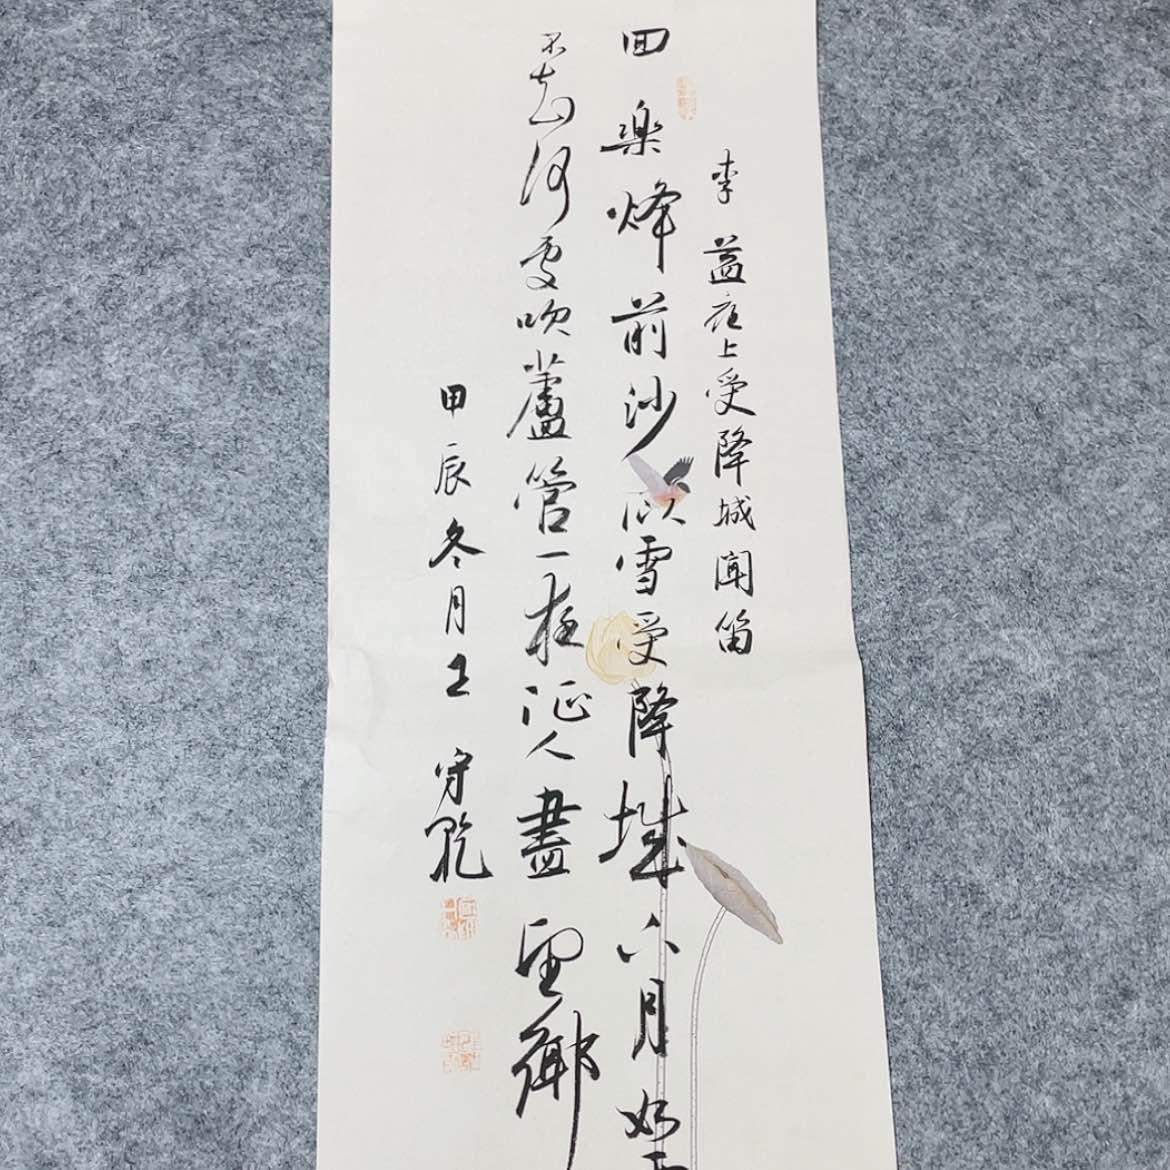 李益夜上受降城聞笛
回樂烽前沙似雪受降城外月如
不知何處吹蘆管一夜征人盡望鄉
甲辰冬月王守乾